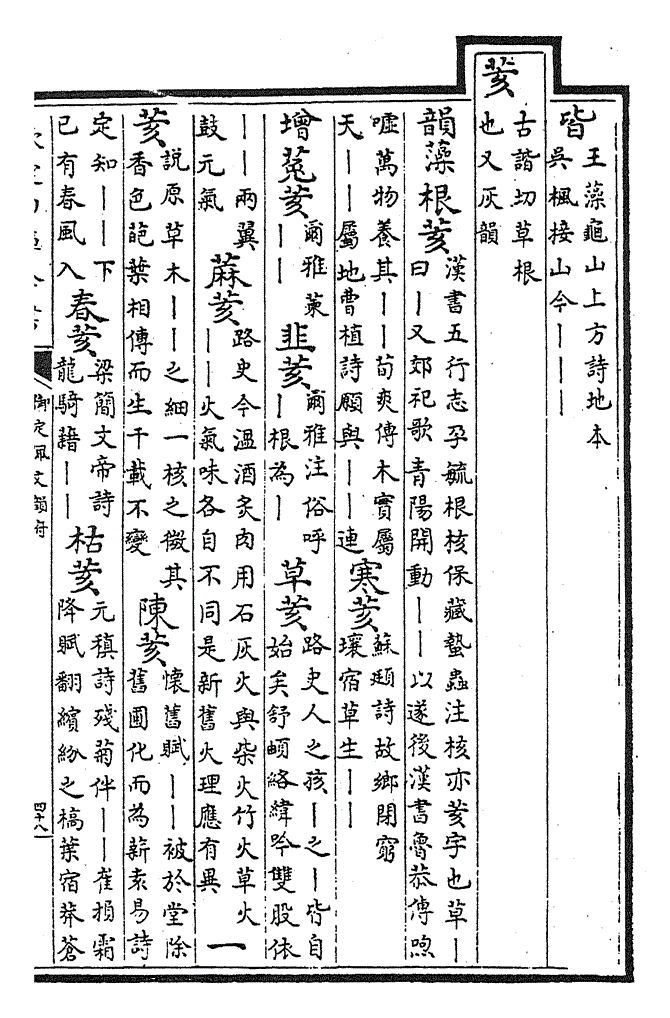 皆王藻龜山上方詩地本
吳楓接山今｜｜｜
荄古諧切草根
也又灰韻
韻藻根荄漢書五行志孕毓根核保藏蟄蟲注核亦荄字也草｜
曰｜又郊祀歌青陽開動｜｜以遂後漢書魯恭傳煦
噓萬物養其｜｜荀爽傳木實屬
天｜｜｜屬地曹植詩願與｜｜連
寒荄蘇頲詩故鄉閉窮
壤宿草生｜｜
增菟荄爾雅葈
｜｜
韭荄爾雅注俗呼
｜根為｜
草荄路史人之孩｜之｜皆自
始矣舒頔絡緯吟雙股依
｜｜兩翼
鼓元氣
蔴荄路史今溫酒炙肉用石灰火與柴火竹火草火
｜｜火氣味各自不同是新舊火理應有異
一
荄說原草木｜｜之細一核之微其
香色葩葉相傳而生千載不變
陳荄懷舊賦｜｜被於堂除
舊圃化而為薪袁易詩
定知｜｜下
已有春風入
春荄梁簡文帝詩
龍騎藉｜｜
枯荄元稹詩殘菊伴｜｜崔損霜
降賦翻繽紛之槁葉宿莽蒼
御定佩文韻府
四十八